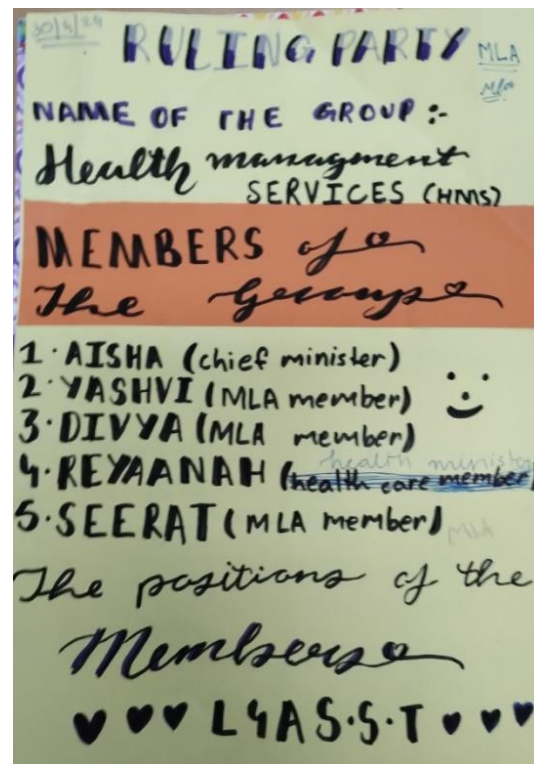 30/4/24
RULING PARTY
MLA
Mla
NAME OF THE GROUP :-
Health managment
SERVICES (HMS)
MEMBERS of
The Group
1. AISHA (chief minister)
2. YASHVI (MLA member)
3. DIVYA (MLA member)
health minister
4. REYAANAH (health care member)
5. SEERAT (MLA member)
MLA
The positions of the
Members
L4A S.S.T